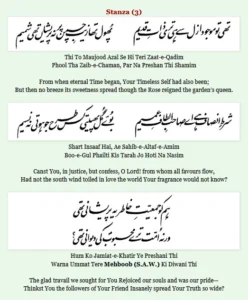 Stanza (3)
تھی تو موجود ازل سے ہی تری ذات قدیم
پھول تھا زیب چمن پر نہ پریشاں تھی شمیم
Thi To Maujood Azal Se Hi Teri Zaat-e-Qadim
Phool Tha Zaib-e-Chaman, Par Na Preshan Thi Shamim
From when eternal Time began, Your Timeless Self had also been;
But then no breeze its sweetness spread though the Rose reigned the garden's queen.
شرط انصاف ہے اے صاحب الطاف عمیم
بوئے گل پھیلتی کس طرح جو ہوتی نہ نسیم
Shart Insaaf Hai, Ae Sahib-e-Altaf-e-Amim
Boo-e-Gul Phailti Kis Tarah Jo Hoti Na Nasim
Canst You, in justice, but confess, O Lord! from whom all favours flow,
Had not the south wind toiled in love would Your fragrance would not know?
ہم کو جمعیت خاطر یہ پریشانی تھی
ورنہ امت ترے محبوب کی دیوانی تھی؟
Hum Ko Jamiat-e-Khatir Ye Preshani Thi
Warna Ummat Tere Mehboob (S.A.W.) Ki Diwani Thi
The glad travail we sought for You Rejoiced our souls and was our pride—
Thinkst You the followers of Your Friend Insanely spread Your Truth so wide?